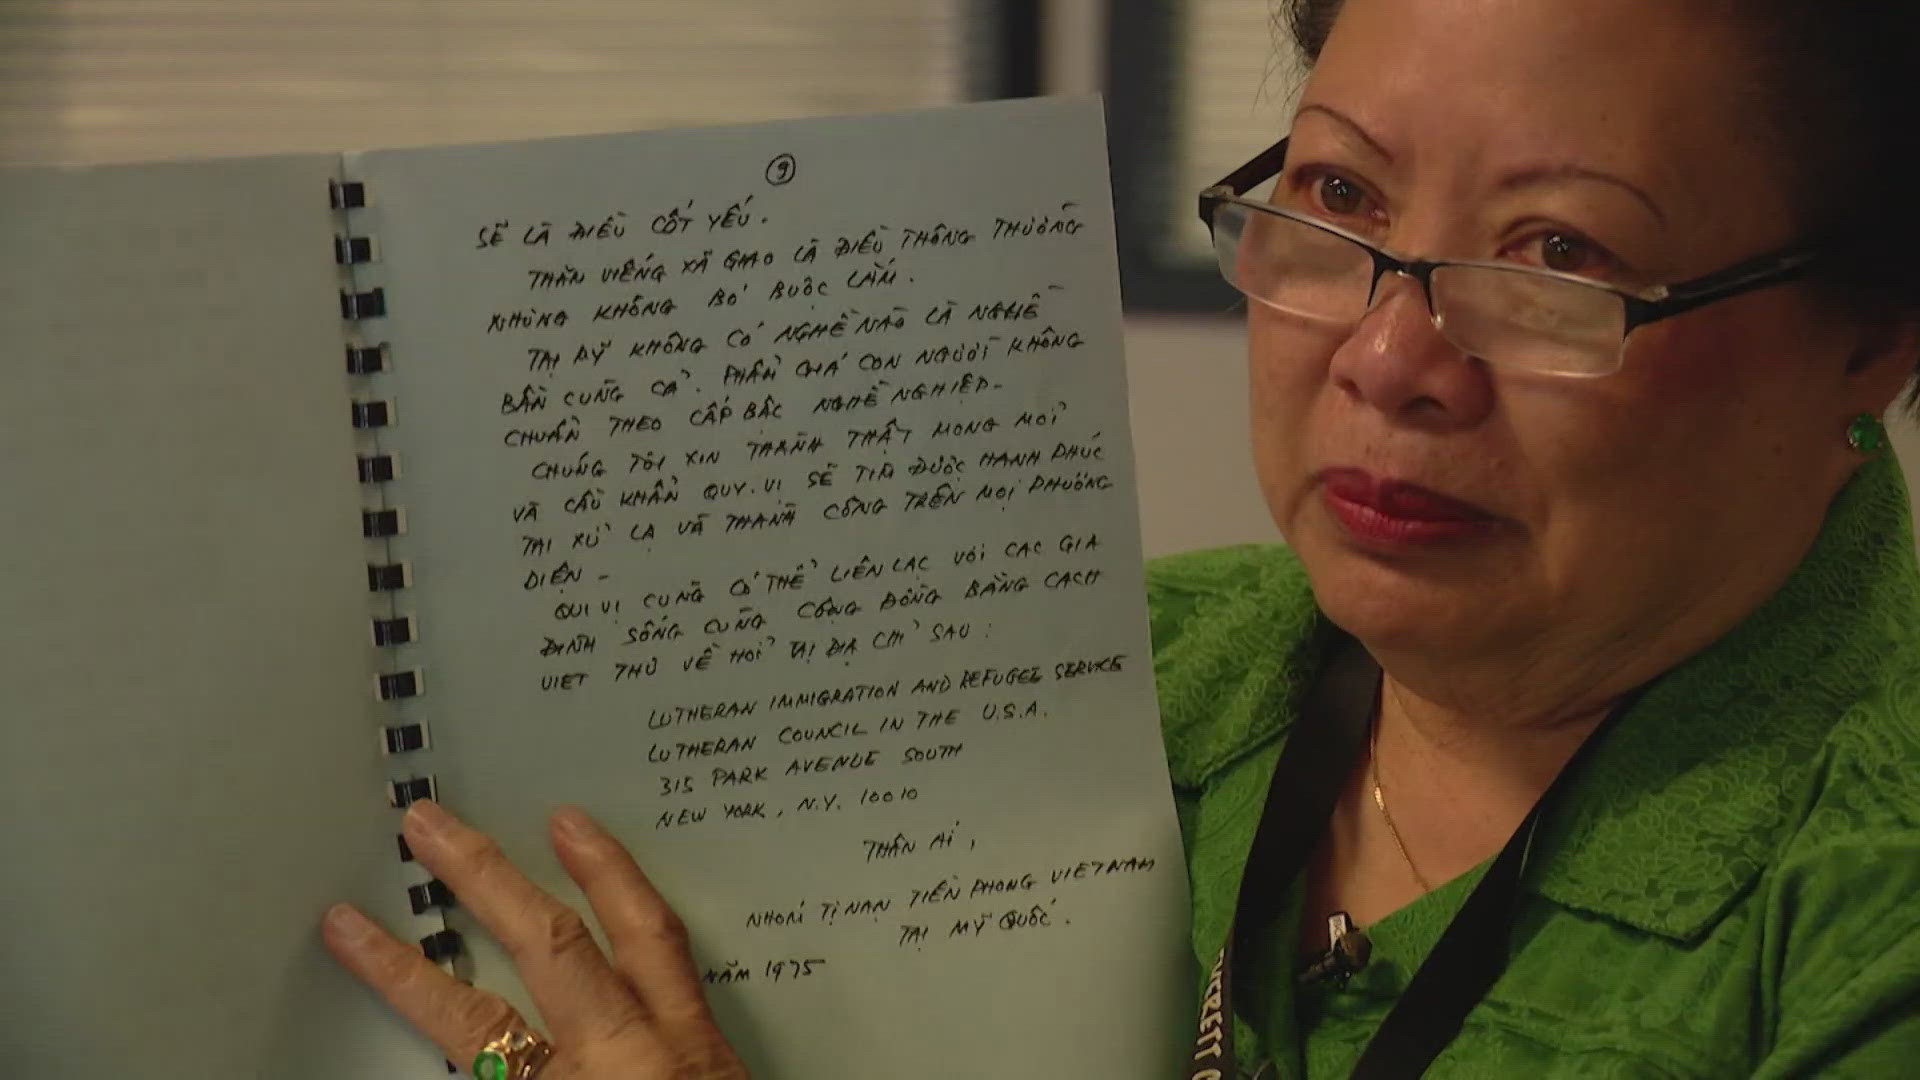 9
SẼ LÀ ĐIỀU CỐT YẾU.
THĂN VIẾNG XÃ GIAO LÀ ĐIỀU THÔNG THƯỜNG
NHƯNG KHÔNG BÓ BUỘC LẮM.
TẠI MỸ KHÔNG CÓ NGHỀ NÀO LÀ NGHỀ
BẦN CÙNG CẢ. PHẨM CHẤ CON NGƯỜI KHÔNG
CHUẨN THEO CẤP BẬC NGHỀ NGHIỆP-
CHÚNG TÔI XIN THÀNH THẬT MONG MỎI
VÀ CẦU KHẨN QUÝ.VỊ SẼ TÌM ĐƯỢC HẠNH PHÚC
TẠI XỨ LẠ VÀ THÀNH CÔNG TRÊN MỌI PHƯƠNG
DIỆN -
QUÍ VỊ CŨNG CÓ THỂ LIÊN LẠC VỚI CÁC GIA
ĐÌNH SỐNG CÙNG CỘNG ĐỒNG BẰNG CÁCH
VIẾT THƯ VỀ HỎI TẠI ĐỊA CHỈ SAU:
LUTHERAN IMMIGRATION AND REFUGEE SERVICE
LUTHERAN COUNCIL IN THE U.S.A.
315 PARK AVENUE SOUTH
NEW YORK, N.Y. 10010
THÂN ÁI,
NHÓM TỊ NẠN TIỀN PHONG VIETNAM
TẠI MỸ QUỐC.
NĂM 1975
EVERETT C